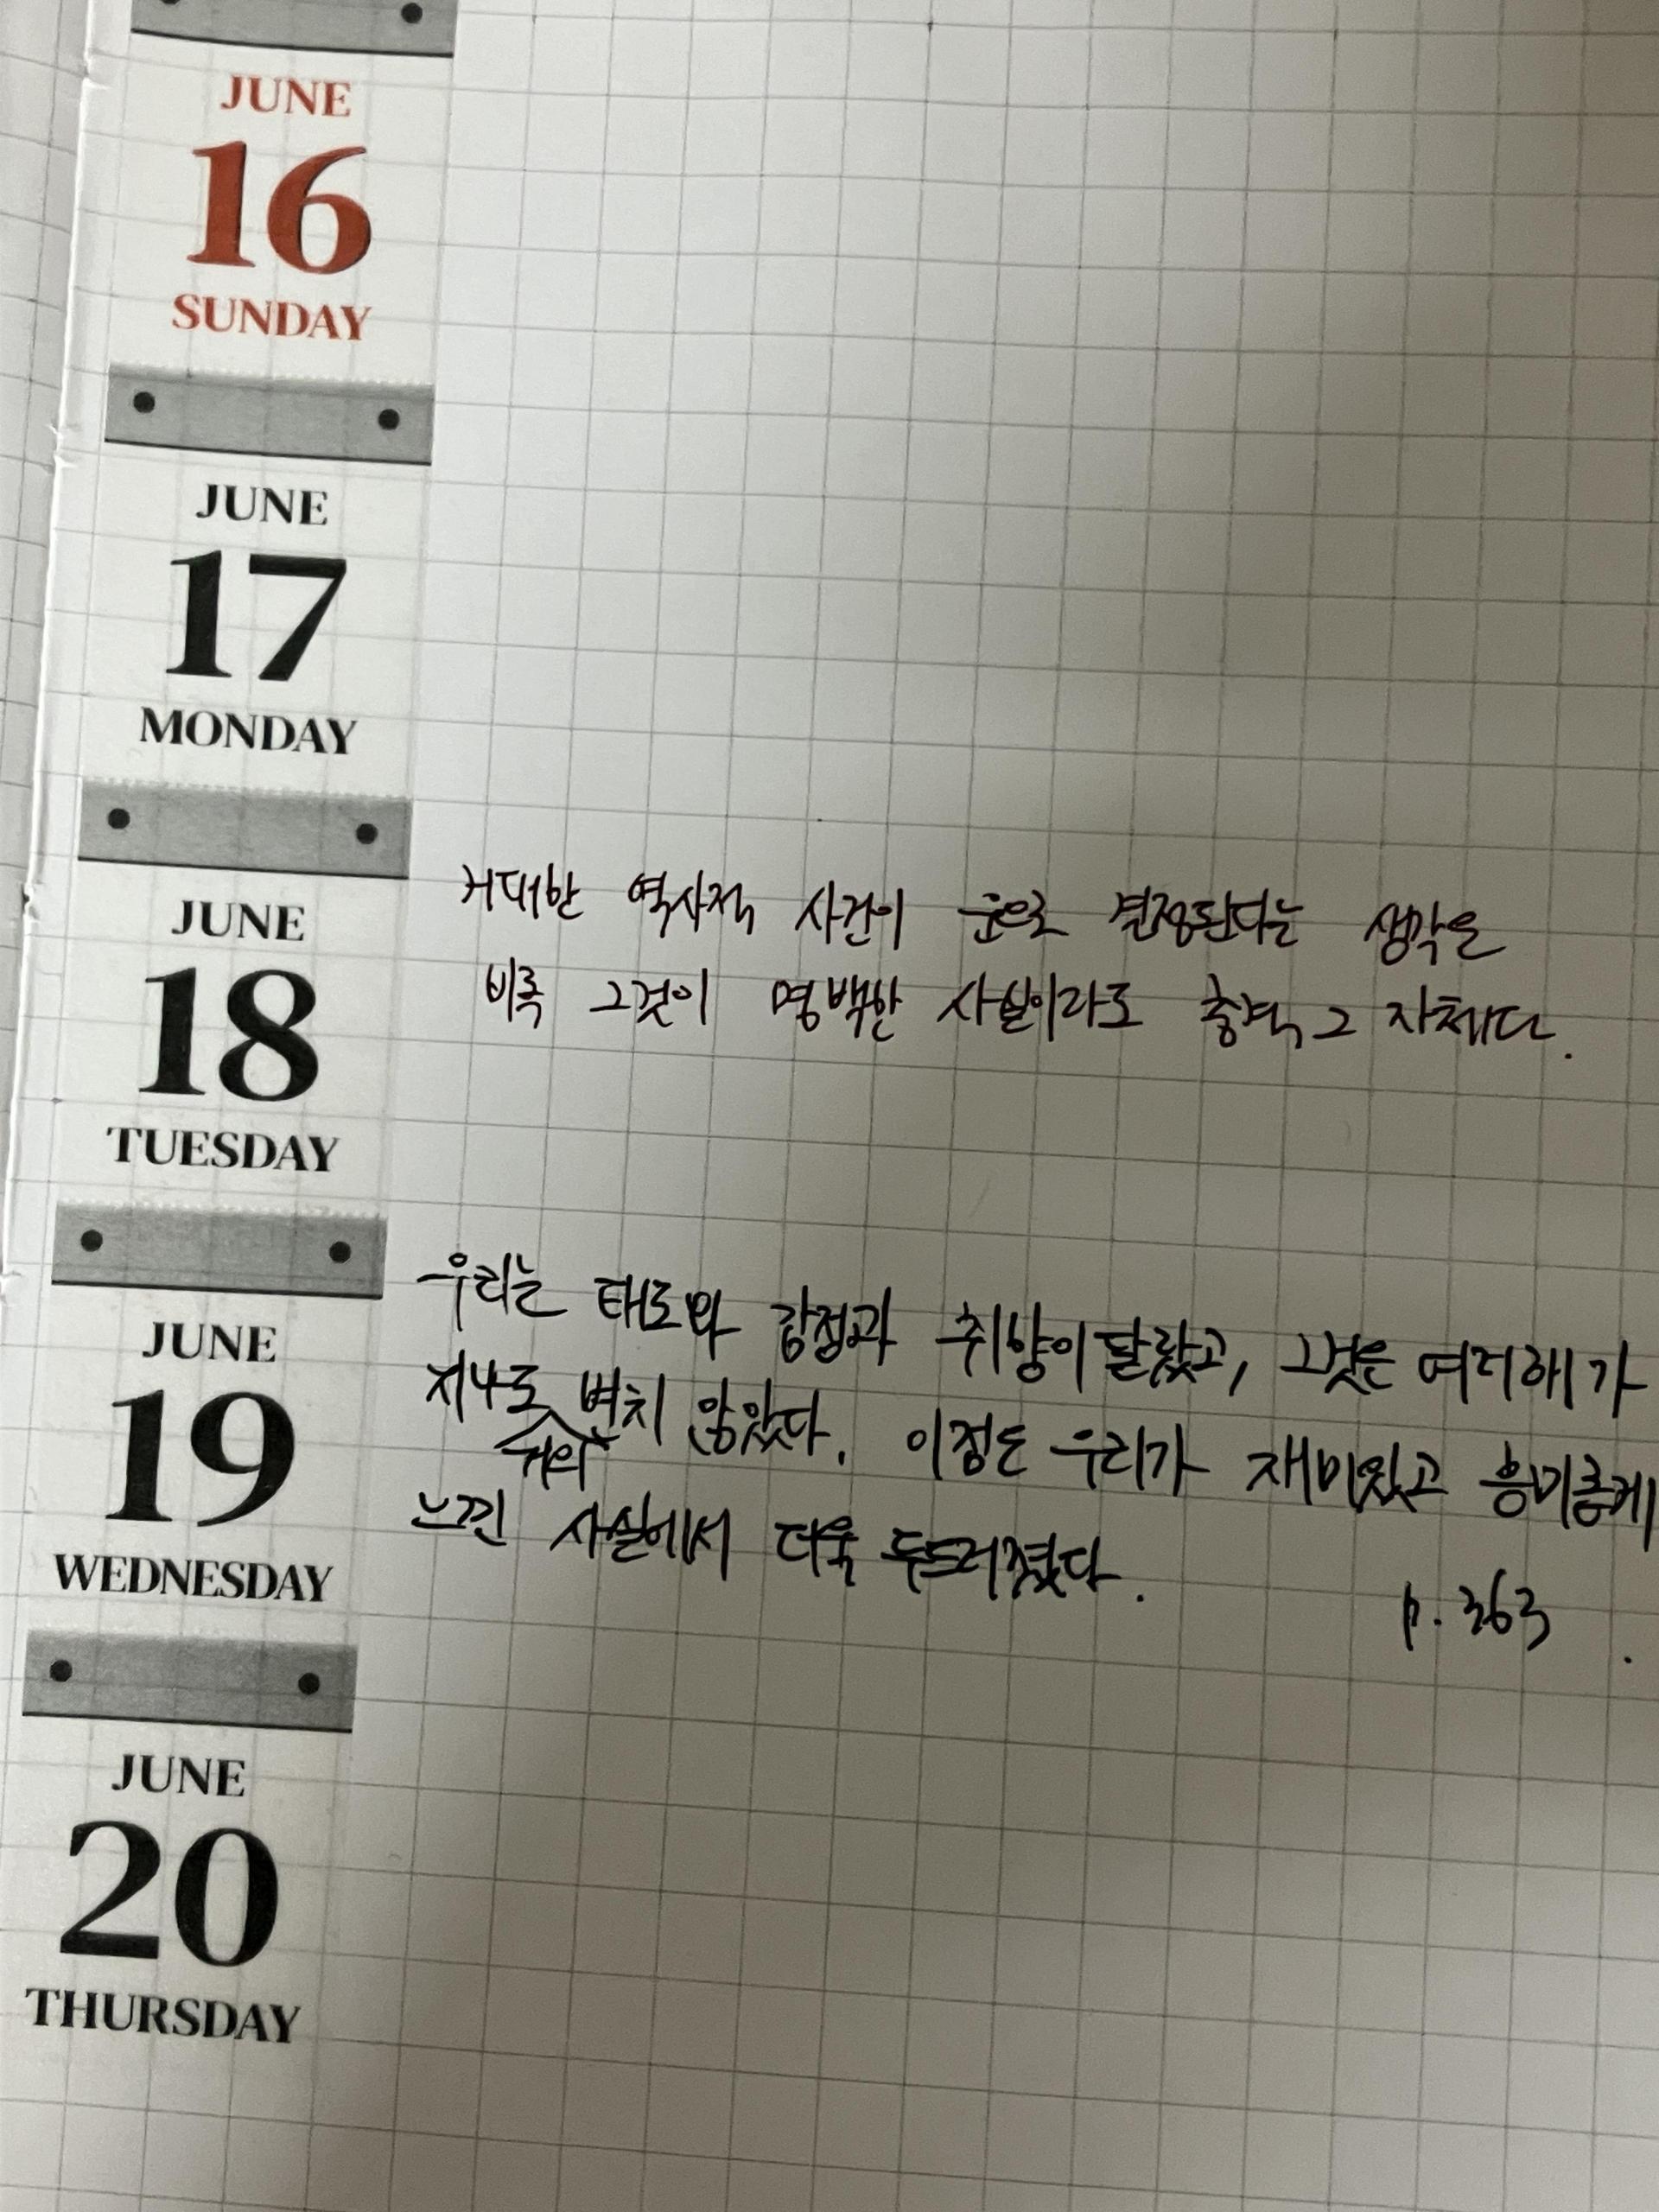 JUNE
16
SUNDAY
JUNE
17
MONDAY
JUNE
18
TUESDAY
거대한 역사적 사건이 운으로 결정된다는 생각은
비록 그것이 명백한 사실이라도 충격 그 자체다.
JUNE
19
WEDNESDAY
우리는 태도와 감정과 취향이 달랐고, 그것은 여러해가
지나도 변치 않았다. 이점은 우리가 재미있고 흥미롭게
거의
느낀 사실에서 더욱 두드러졌다.
p. 363
JUNE
20
THURSDAY